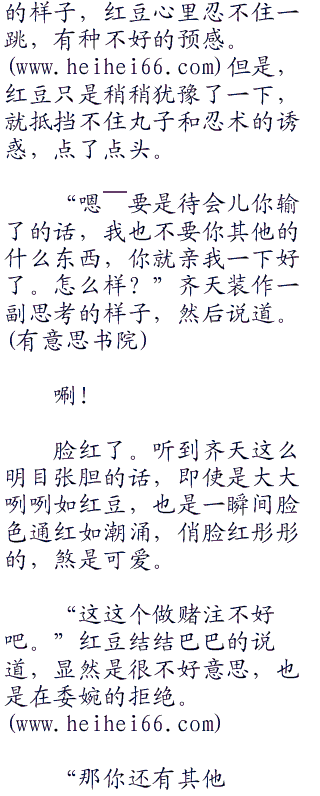 的样子，红豆心里忍不住一
跳，有种不好的预感。
(www.heihei66.com)但是，
红豆只是稍稍犹豫了一下，
就抵挡不住丸子和忍术的诱
惑，点了点头。
“嗯￣要是待会儿你输
了的话，我也不要你其他的
什么东西，你就亲我一下好
了。怎么样？”齐天装作一
副思考的样子，然后说道。
(有意思书院)
唰！
脸红了。听到齐天这么
明目张胆的话，即使是大大
咧咧如红豆，也是一瞬间脸
色通红如潮涌，俏脸红彤彤
的，煞是可爱。
“这这个做赌注不好
吧。”红豆结结巴巴的说
道，显然是很不好意思，也
是在委婉的拒绝。
(www.heihei66.com)
“那你还有其他